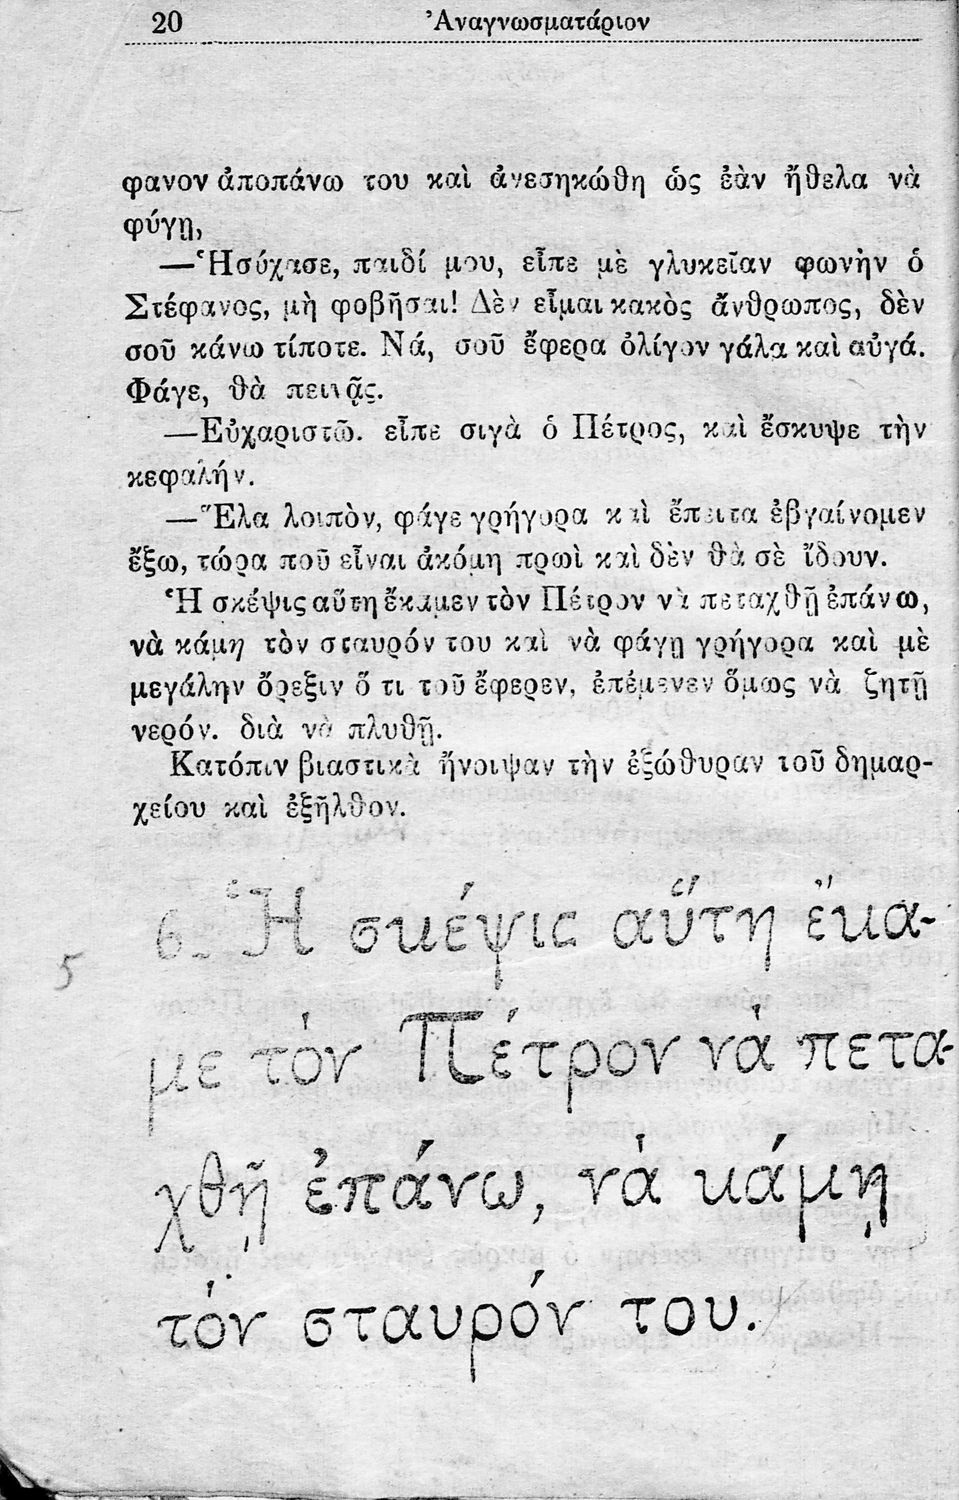 20 Ἀναγνωσματάριον
φανον ἀποπάνω του καὶ ἀνεσηκώθη ὡς ἐὰν ἤθελα νὰ
φύγῃ,
—Ἡσύχασε, παιδί μου, εἶπε μὲ γλυκεῖαν φωνὴν ὁ
Στέφανος, μὴ φοβῆσαι! Δὲν εἶμαι κακὸς ἄνθρωπος, δὲν
σοῦ κάνω τίποτε. Νά, σοῦ ἔφερα ὀλίγον γάλα καὶ αὐγά.
Φάγε, θὰ πεινᾷς.
—Εὐχαριστῶ. εἶπε σιγὰ ὁ Πέτρος, καὶ ἔσκυψε τὴν
κεφαλήν.
—Ἔλα λοιπὸν, φάγε γρήγορα καὶ ἔπειτα ἐβγαίνομεν
ἔξω, τώρα ποῦ εἶναι ἀκόμη πρωὶ καὶ δὲν θὰ σὲ ἴδουν.
Ἡ σκέψις αὕτη ἔκαμεν τὸν Πέτρον νὰ πεταχθῇ ἐπάνω,
νὰ κάμη τὸν σταυρόν του καὶ νὰ φάγῃ γρήγορα καὶ μὲ
μεγάλην ὄρεξιν ὅ τι τοῦ ἔφερεν, ἐπέμενεν ὅμως νὰ ζητῇ
νερόν. διὰ νὰ πλυθῇ.
Κατόπιν βιαστικὰ ἤνοιψαν τὴν ἐξώθυραν τοῦ δημαρ-
χείου καὶ ἐξῆλθον.
6. Ἡ σκέψις αὕτη ἔκα-
5
με τὸν Πέτρον νὰ πετα-
χθῇ ἐπάνω, νὰ κάμῃ
τὸν σταυρόν του.